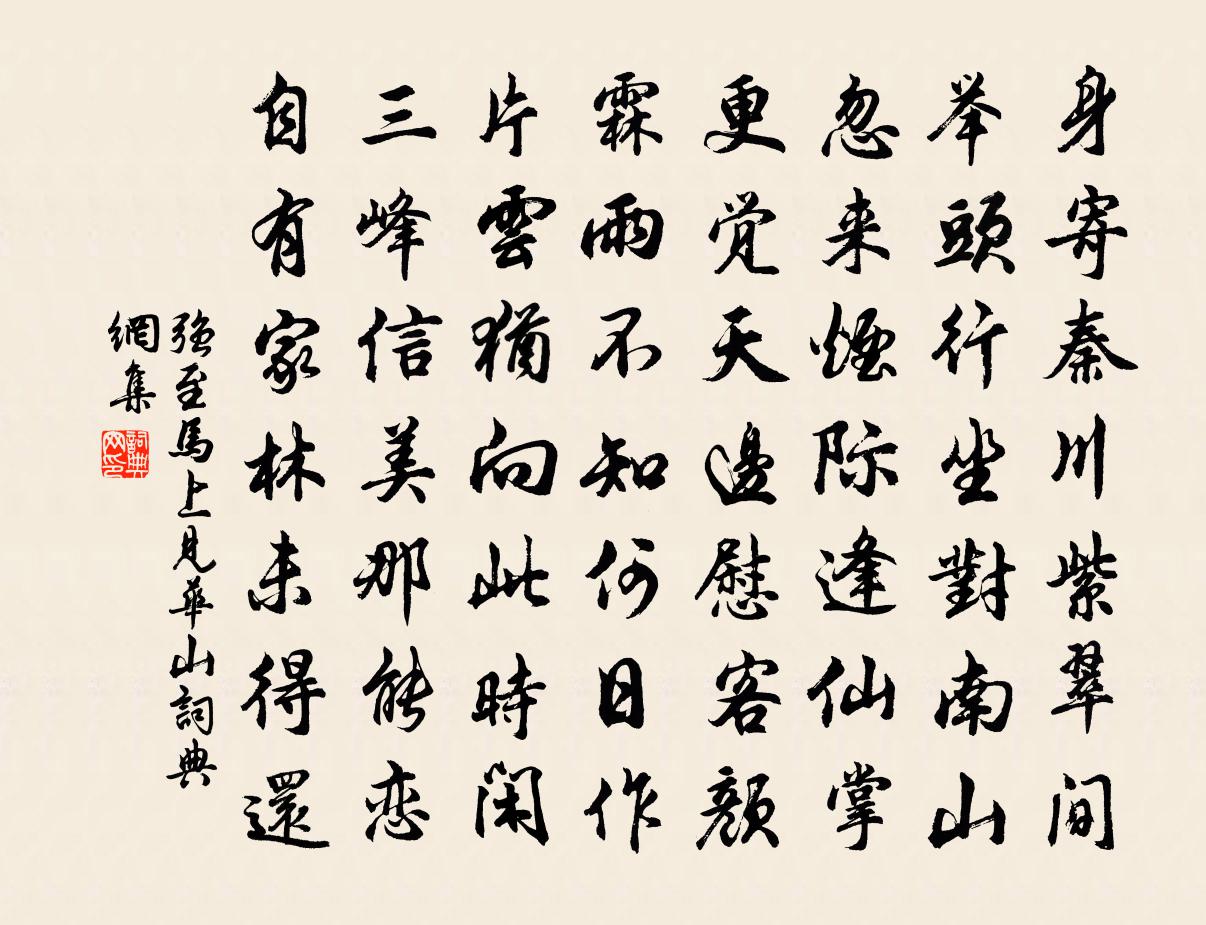 身寄秦川紫翠间
举頭行坐對南山
忽来煙际逢仙掌
更觉天邊慰客颜
霖雨不知何日作
片雲猶向此時闲
三峰信美那能恋
自有家林未得還
强至馬上見華山詞典
網集
詞典网印